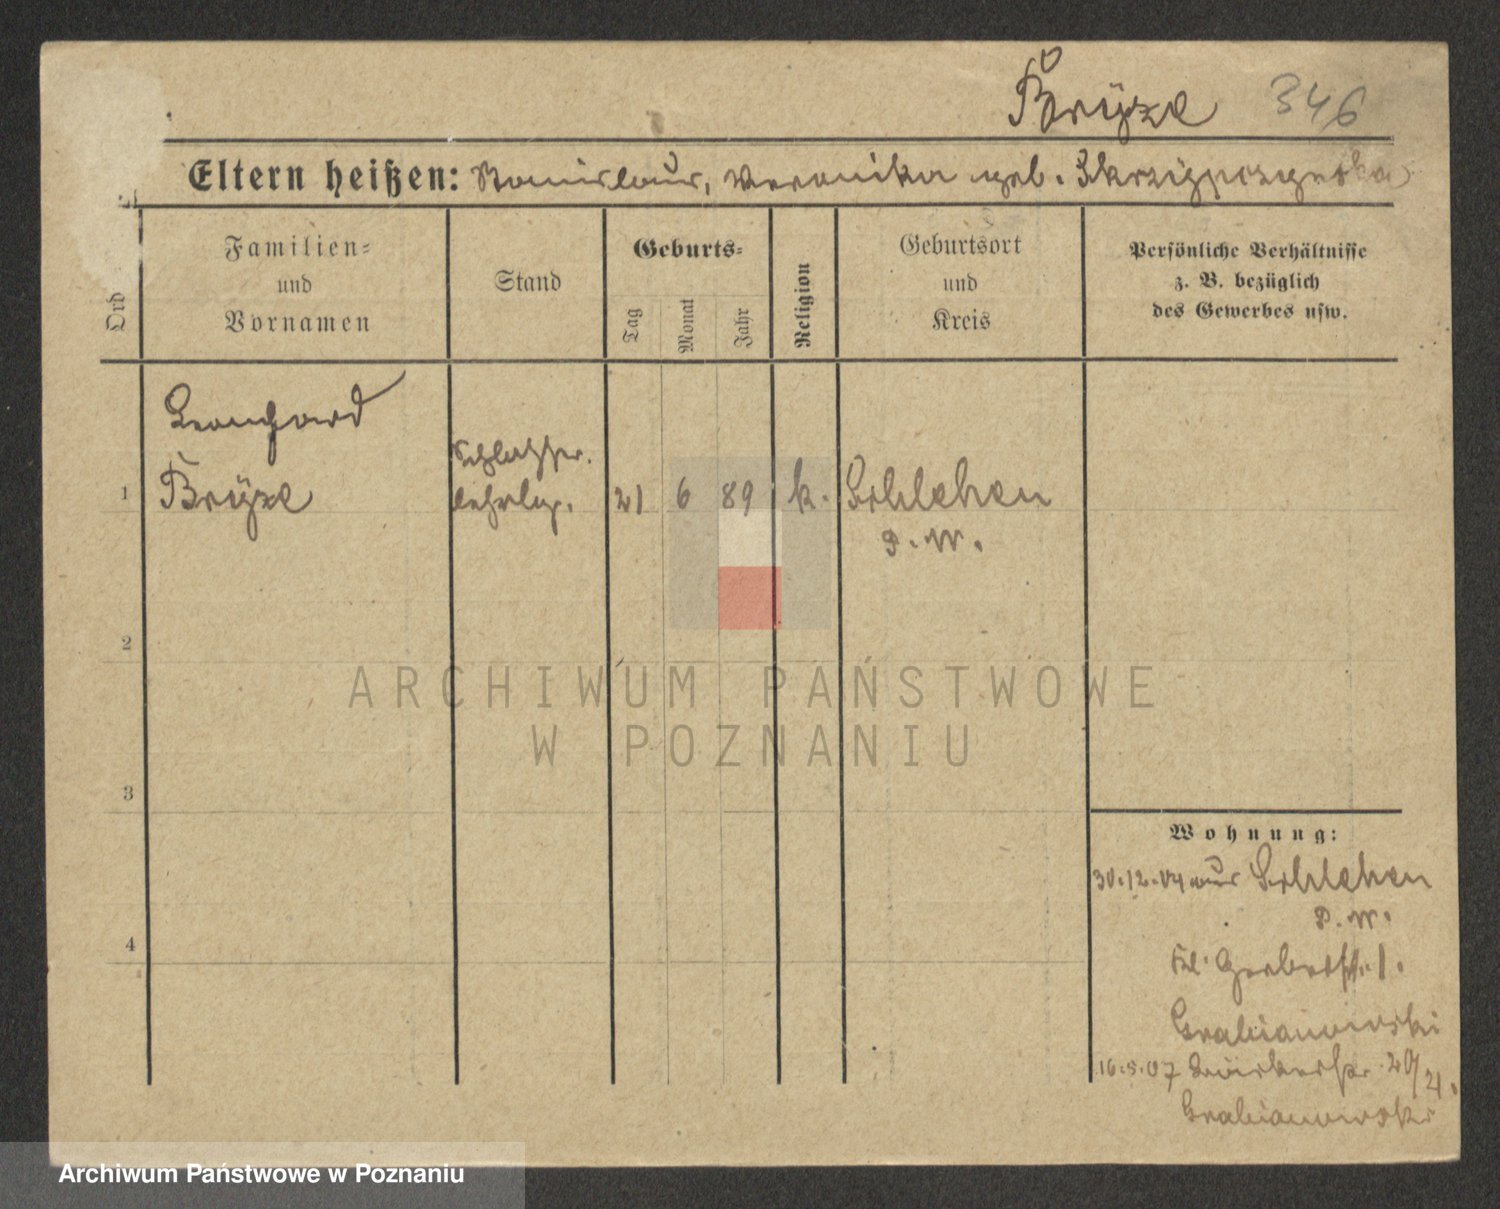 Bryze 346
Eltern heißen: Stanislaus, Veronika geb.
Familien=
und
Vornamen
Stand
Geburts=
Tag
Monat
Jahr
Religion
Geburtsort
und
Kreis
Persönliche Verhältnisse
z. B. bezüglich
des Gewerbes usw.
Ord
Leonhard
1 Bryze
Schlosser.
lehrlg.
21 6 89 k.
Schlehen
P. W.
2
3
4
Wohnung:
30.12.04 aus Schlehen
P. W.
Gerberstr. 1.
Grabianowski
16.5.07 20/21.
Grabianowski
ARCHIWUM PAŃSTWOWE
W POZNANIU
Archiwum Państwowe w Poznaniu